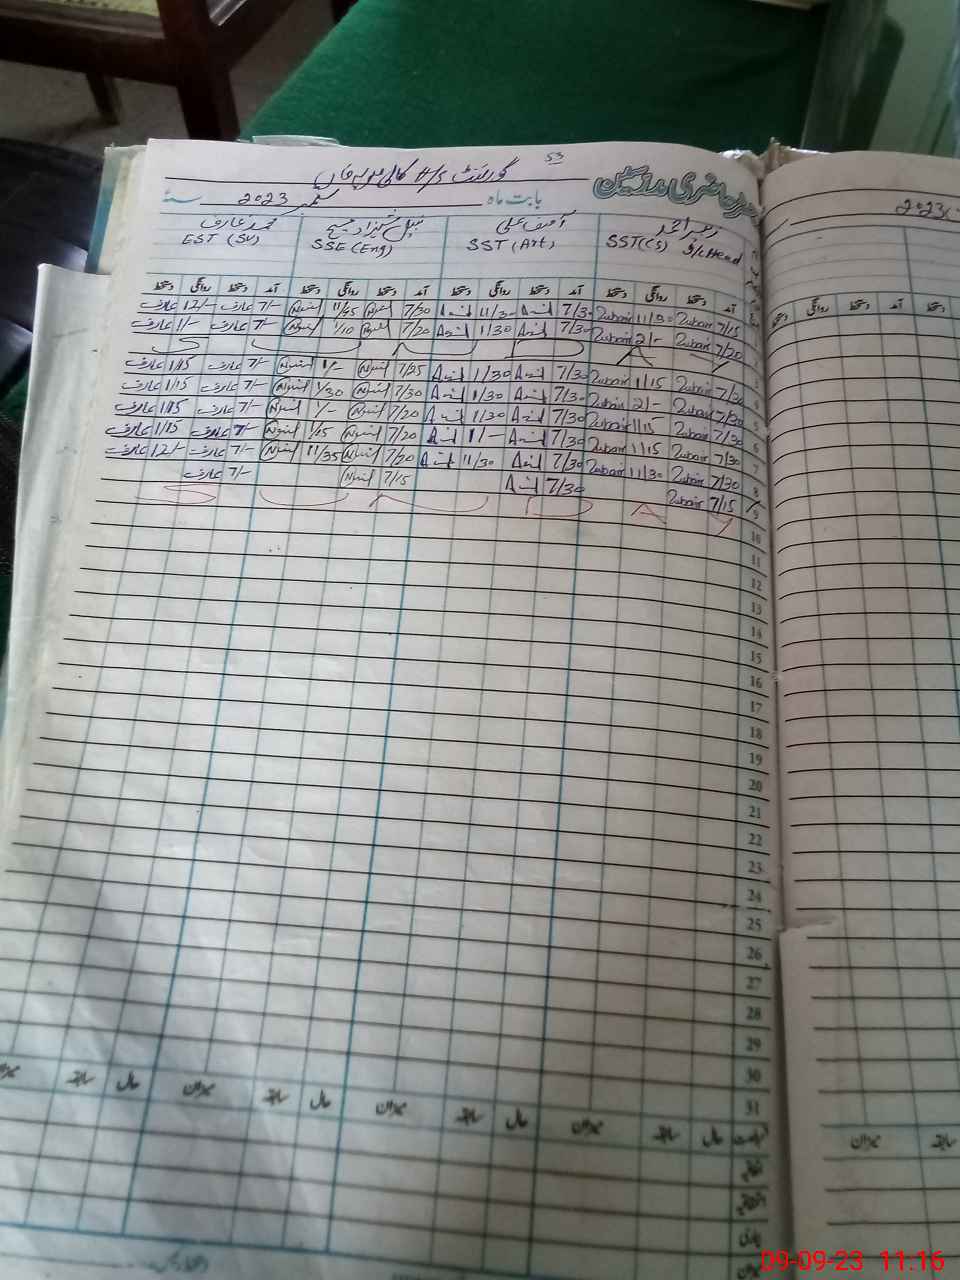 53
گورنمنٹ H/S
رجسٹر حاضری مدرسین
بابت ماہ ستمبر 2023 سنہ
2023
زبیر احمد آصف علی نبیل شہزاد مسیح محمد عارف
SST (CS) I/c Head SST (Art) SSE (Eng) EST (SV)
آمد دستخط روانگی دستخط آمد دستخط روانگی دستخط آمد دستخط روانگی دستخط آمد دستخط روانگی دستخط
7/15 Zubair 11/30 Zubair 7/30 Asif 11/30 Asif 7/30 Nabil 11/45 Nabil 7/- عارف 12/- عارف
7/20 Zubair 2/- Zubair 7/30 Asif 1/30 Asif 7/20 Nabil 1/10 Nabil 7/- عارف 1/- عارف
S U N D A Y
7/30 Zubair 1/15 Zubair 7/30 Asif 1/30 Asif 7/25 Nabil 1/- Nabil 7/- عارف 1/15 عارف
7/30 Zubair 2/- Zubair 7/30 Asif 1/30 Asif 7/30 Nabil 1/30 Nabil 7/- عارف 1/15 عارف
7/30 Zubair 1/15 Zubair 7/30 Asif 1/30 Asif 7/20 Nabil 1/- Nabil 7/- عارف 1/15 عارف
7/30 Zubair 1/15 Zubair 7/30 Asif 1/- Asif 7/20 Nabil 1/25 Nabil 7/- عارف 1/15 عارف
7/30 Zubair 11/30 Zubair 7/30 Asif 11/30 Asif 7/20 Nabil 11/35 Nabil 7/- عارف 12/- عارف
7/15 Zubair 7/30 Asif 7/15 Nabil 7/- عارف
S U N D A Y
3
4
5
6
7
8
9
10
11
12
13
14
15
16
17
18
19
20
21
22
23
24
25
26
27
28
29
30
31
حال سابقہ میزان حال سابقہ میزان حال سابقہ میزان حال سابقہ میزان
اتفاقیہ
بیماری
میزان
سابقہ میزان
09-09-23 11:16